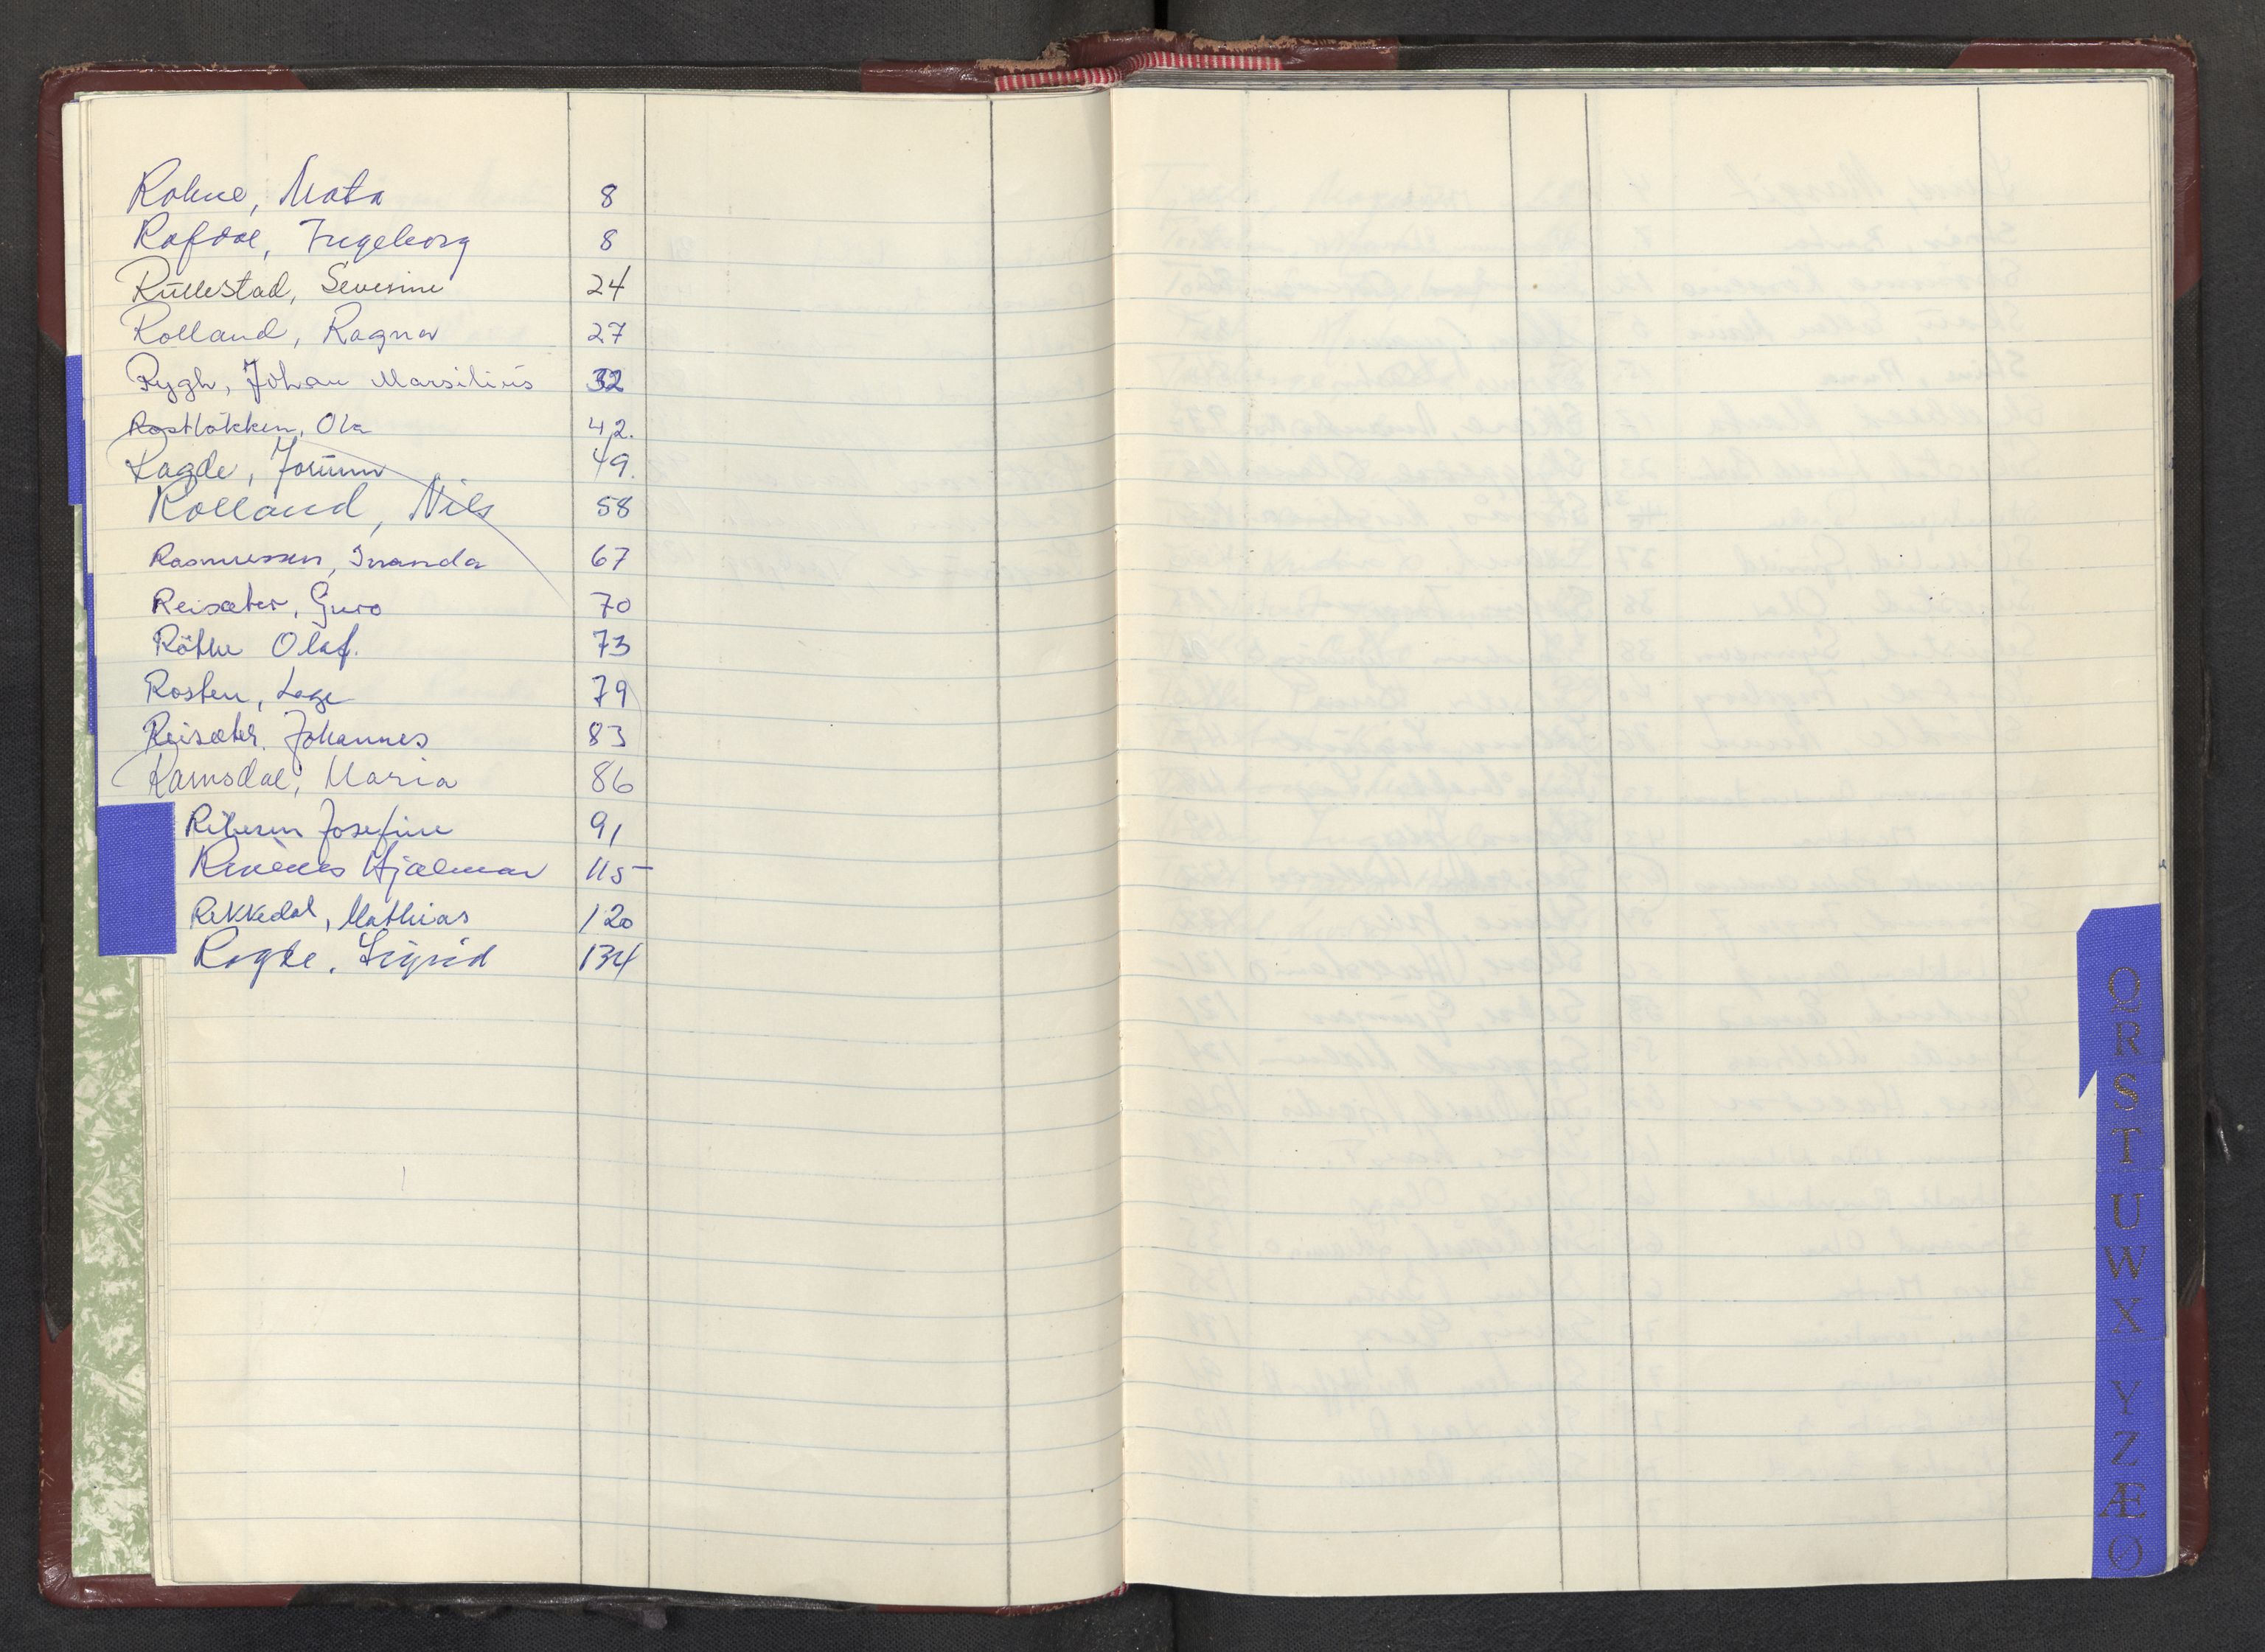 Rohne, Mata 8
Rafdal, Ingeborg 8
Rullestad, Severine 24
Rolland, Ragna 27
Rygh, Johan Marsilius 32
Rostløkken, Ola 42.
Ragde, Jorunn 49.
Rolland, Nils 58
Rasmussen, Inanda 67
Reisæter, Guro 70
Röthe Olaf. 73
Rosten, Lage 79
Reisæter. Johannes 83
Ramsdal, Maria 86
Josefine 91
Hjalmar 115
Rekkedal, Mathias 120
Ragde, Sigrid 134
Q
R
S
T
U
W
X
Y
Z
Æ
Ø